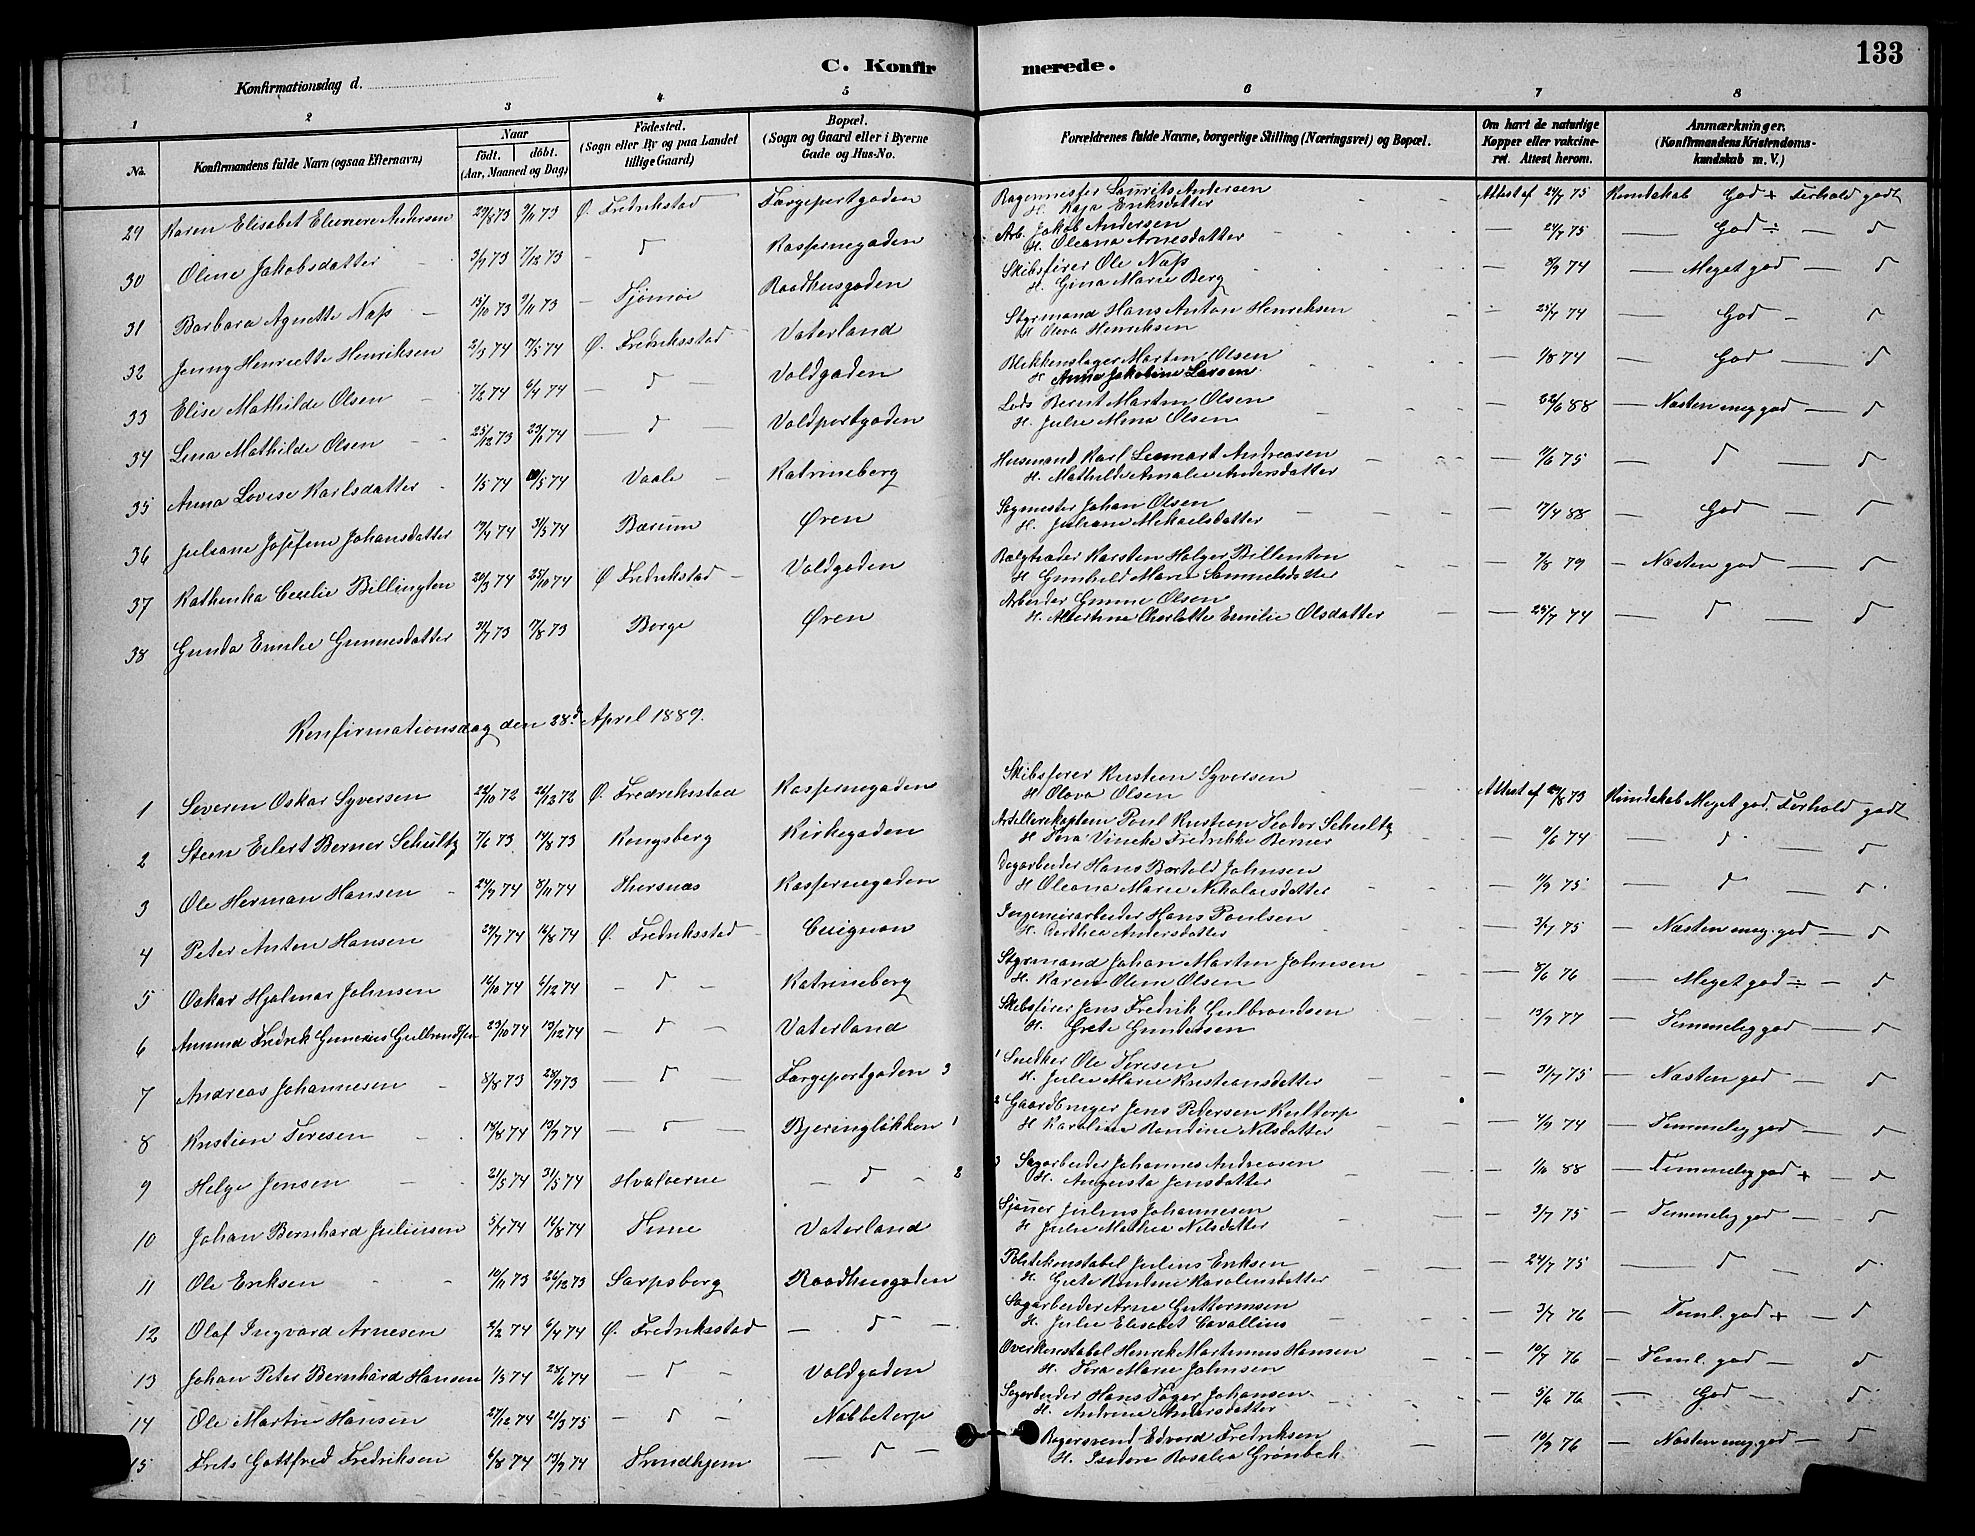 C. Konfirmerede.
133
Konfirmationsdag d.
1 2 3 4 5 6 7 8
No. Konfirmandens fulde Navn (ogsaa Efternavn) Naar födt. döbt. (Aar, Maaned og Dag) Födested. (Sogn eller By og paa Landet tillige Gaard) Bopæl. (Sogn og Gaard eller i Byerne Gade og Hus-No. Forældrenes fulde Navne, borgerlige Stilling (Næringsvei) og Bopæl. Om havt de naturlige Kopper eller vakcineret. Attest herom. Anmærkninger. (Konfirmandens Kristendomskundskab m. V.)
29 Karen Elisabet Elenore Andersen 29/8 73 9/11 73 Ø. Fredrikstad Færgeportgaden Bagermester Laurits Andersen H. Kaja Eriksdatter Attest af 24/7 75 Kundskab God + Forhold godt
30 Oline Jakobsdatter 3/9 73 7/12 73 — d Kasernegaden Arb. Jakob Andersen H. Oleana Arnesdatter — 24/7 75 — God ÷ — d
31 Barbara Agnette Næss 15/10 73 9/11 73 — Tjømø Raadhusgaden Skibsfører Ole Næss H. Gina Marie Berg — 8/9 74 — Meget god — d
32 Jenny Henriette Henriksen 2/3 74 7/5 74 Ø. Fredriksstad Vaterland Styrmand Hans Anton Henriksen H. Olava Henriksen — 25/7 74 — God — d
33 Elise Mathilde Olsen 7/2 74 6/4 74 — d — Voldgaden Blikkenslager Morten Olsen H. Anna Jakobine Larsen — 1/8 74 — God — d
34 Lina Mathilde Olsen 25/12 73 23/1 74 — d — Voldportgaden Lods Bernt Martin Olsen H. Julie Mina Olsen — 22/6 88 — Næsten meg god — d
35 Anna Lovise Karlsdatter 1/5 74 10/5 74 Vaale Katrineborg Husmand Karl Lennart Andreasen H. Mathilde Amalie Andersdatter — 9/6 75 — d — d
36 Juliane Josefine Johansdatter 19/4 74 31/5 74 Bærum Øren Sagmester Johan Olsen H. Juliane Mikaelsdatter — 17/4 88 — God — d
37 Kathinka Cecelie Billington 20/3 74 25/10 74 Ø. Fredrikstad Voldgaden Bælgtræder Karsten Holger Billenton H. Gunhild Marie Samuelsdatter — 7/8 79 — Næsten god — d
38 Gunda Emilie Gunnesdatter 31/7 73 17/8 73 Borge Øren Arbeider Gunne Olsen H. Martina Charlotte Emilie Olsdatter — 25/7 74 — d — d
Konfirmationsdag den 28d April 1889.
1 Severin Oskar Syversen 22/10 72 26/12 72 Ø. Fredriksstad Kasernegaden Skibsfører Kristian Syversen H. Olava Olsen Attest af 8/73 Kundskab Meget god. Forhold godt
2 Steen Eilert Berner Schultz 7/6 73 14/8 73 Kongsberg Kirkegaden Artillerikaptein Poul Kristian Teodor Schultz H. Tora Vincke Fredrikke Berner — 9/6 74 — d — d
3 Ole Herman Hansen 24/9 74 8/11 74 Thorsnæs Kasernegaden Dagarbeider Hans Bartold Johnsen H. Oleana Marie Nikolaisdatter — 11/9 75 — d — d
4 Peter Anton Hansen 29/7 74 16/8 74 Ø. Fredriksstad Cuignon Ingeniørarbeider Hans Poulsen H. Dorthea Andersdatter — 3/7 75 — Næsten meg. god — d
5 Oskar Hjalmar Johnsen 16/10 74 6/12 74 — d — Katrineborg Styrmand Johan Martin Johnsen H. Karen Oline Olsen — 8/6 76 — Meget god ÷ — d
6 Amund Fredrik Gunerius Gulbrandsen 23/10 74 13/12 74 — d — Vaterland Skibsfører Jens Fredrik Gulbrandsen H. Grete Gundersen — 13/9 77 — Temmelig god — d
7 Andreas Johannesen 8/8 73 28/9 73 — d — Færgeportgaden 3 1 Snedker Ole Toresen H. Julie Marie Kristiansdatter — 31/7 75 — Næsten god — d
8 Kristian Toresen 18/8 74 13/9 74 — d — Bjeringløkken 1 2 Gaardbruger Jens Petersen Rultorp H. Karoline Randine Nilsdatter — 4/9 74 — Temmelig god — d
9 Helge Jensen 21/5 74 31/5 74 Hvaløerne — d — 2 3 Sagarbeider Johannes Andreasen H. Augusta Jensdatter — 88 — Temmelig god + — d
10 Johan Bernhard Juliusen 5/7 74 16/8 74 Tune Vaterland Sjøuer Julius Johannesen H. Julie Mathea Nilsdatter — 3/7 75 — Temmelig god — d
11 Ole Eriksen 10/11 73 26/12 73 Sarpsborg Raadhusgaden Politikonstabel Julius Eriksen H. Grete Randine Karolinsdatter — 24/7 75 — d — d
12 Olaf Ingvard Arnesen 2/2 74 6/4 74 Ø. Fredriksstad — d — Sagarbeider Arne Guttormsen H. Julie Elisabet Cavallius — 3/7 76 — Teml. god + — d
13 Johan Peter Bernhard Hansen 1/3 74 28/6 74 — d — Voldgaden Overkonstabel Henrik Martinus Hansen H. Tora Marie Johnsen — 10/7 76 — Teml. god — d
14 Ole Martin Hansen 27/12 74 21/3 75 — d — Nabbetorp Sagarbeider Hans Aager Johansen H. Andrine Andersdatter — 5/6 76 — God — d
15 Frits Gottfred Fredriksen 6/8 74 13/9 74 Trondhjem — d — Bagersvend Edvard Fredriksen H. Isidora Rosalia Grønbek — 10/9 76 — Næsten meg. god — d